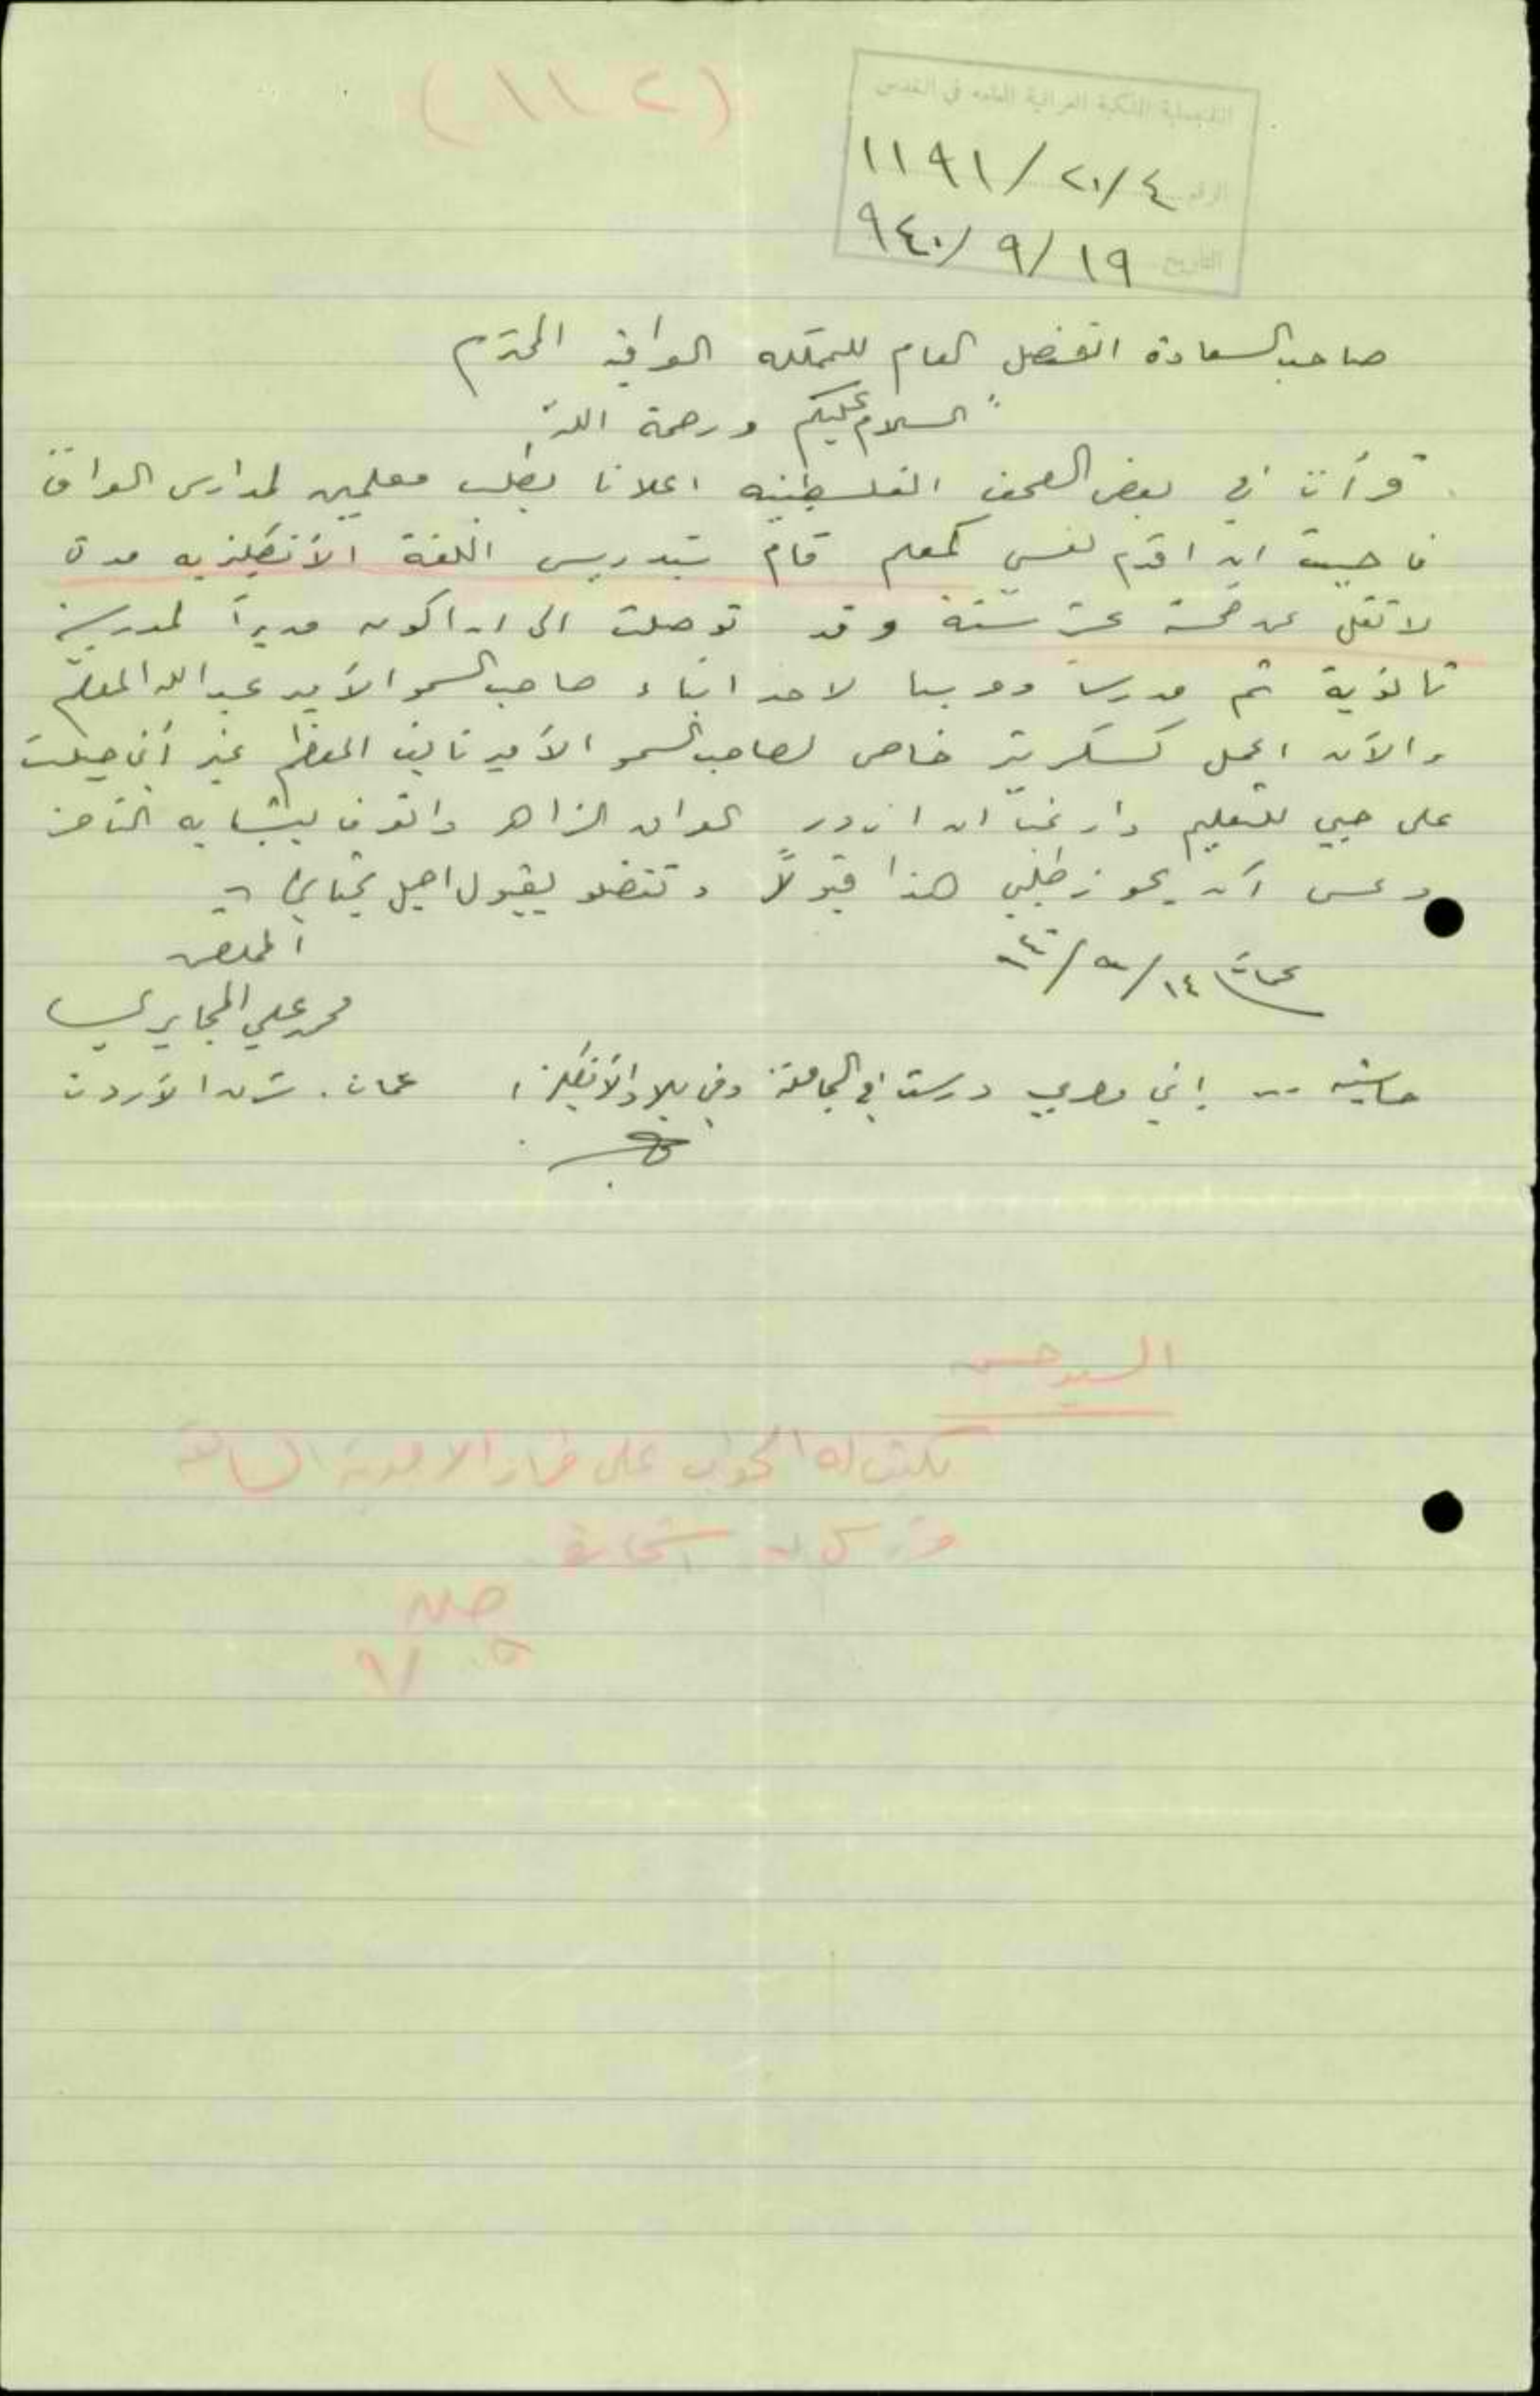 (١١٢)
القنصلية الملكية العراقية العامة في القدس
الرقم ١١٩١/٢٠/٤
التاريخ ٩٤٠/٩/١٩
صاحب السعادة القنصل العام للمملكه العراقيه المحترم
السلام عليكم ورحمة الله
قرأت في بعض الصحف الفلسطينيه اعلانا بطلب معلمين لمدارس العراق
فاحببت ان اقدم نفسي كمعلم قام بتدريس اللغة الأنكليزيه مدة
لا تقل عن خمسة عشر سنة وقد توصلت الى ان اكون مديراً لمدرسة
ثانوية ثم مدرسا ومربيا لاحد ابناء صاحب السمو الأمير عبدالله المعظم
والآن اعمل كسكرتير خاص لصاحب السمو الأمير نايف المعظم غير أني جبلت
على حبي للتعليم وارغب ان ازور العراق الزاهر واتعرف بشبابه الناهز
وعسى أن يحوز طلبي هذا قبولاً وتتفضلو بقبول اجمل تحياتي
المخلص
عمان ١٤/٩/٩٤٠
محمد علي الجابري
حاشيه -- إني مصري درست في الجامعة وفي بلاد الأنكليز
عمان. شرق الأردن
السيد حسن
يكتب له الجواب على غرار الاجوبة السابقة
وترسل له استمارة